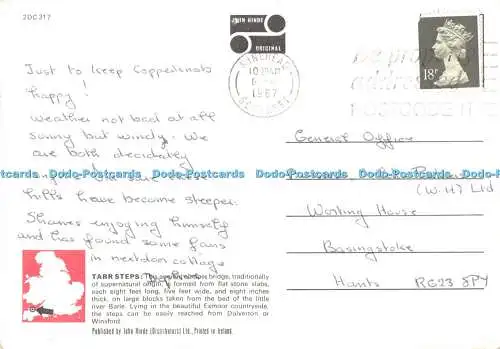 200317
JOHN HINDE
ORIGINAL
MINEHEAD
10
1987
SOMERSET
be properly
addressed
POSTCODE IT
18P
Just to keep Coppernobs
happy!
Weather not bad at all
sunny but windy. We
are both decidedly
hills have become steeper.
Shanes enjoying himself
and has found some fans
in nextdoor cottage
General Office
(W.H) Ltd
Worting House
Basingstoke
Hants RG23 8PY
Dodo-Postcards Dodo-Postcards Dodo-Postcards Dodo-Postcards
TARR STEPS: The bridge, traditionally
of supernatural origin, is formed from flat stone slabs,
each eight feet long, five feet wide, and eight inches
thick, on large blocks taken from the bed of the little
river Barle. Lying in the beautiful Exmoor countryside,
the steps can be easily reached from Dulverton or
Winsford.
Published by John Hinde (Distributors) Ltd., Printed in Ireland.